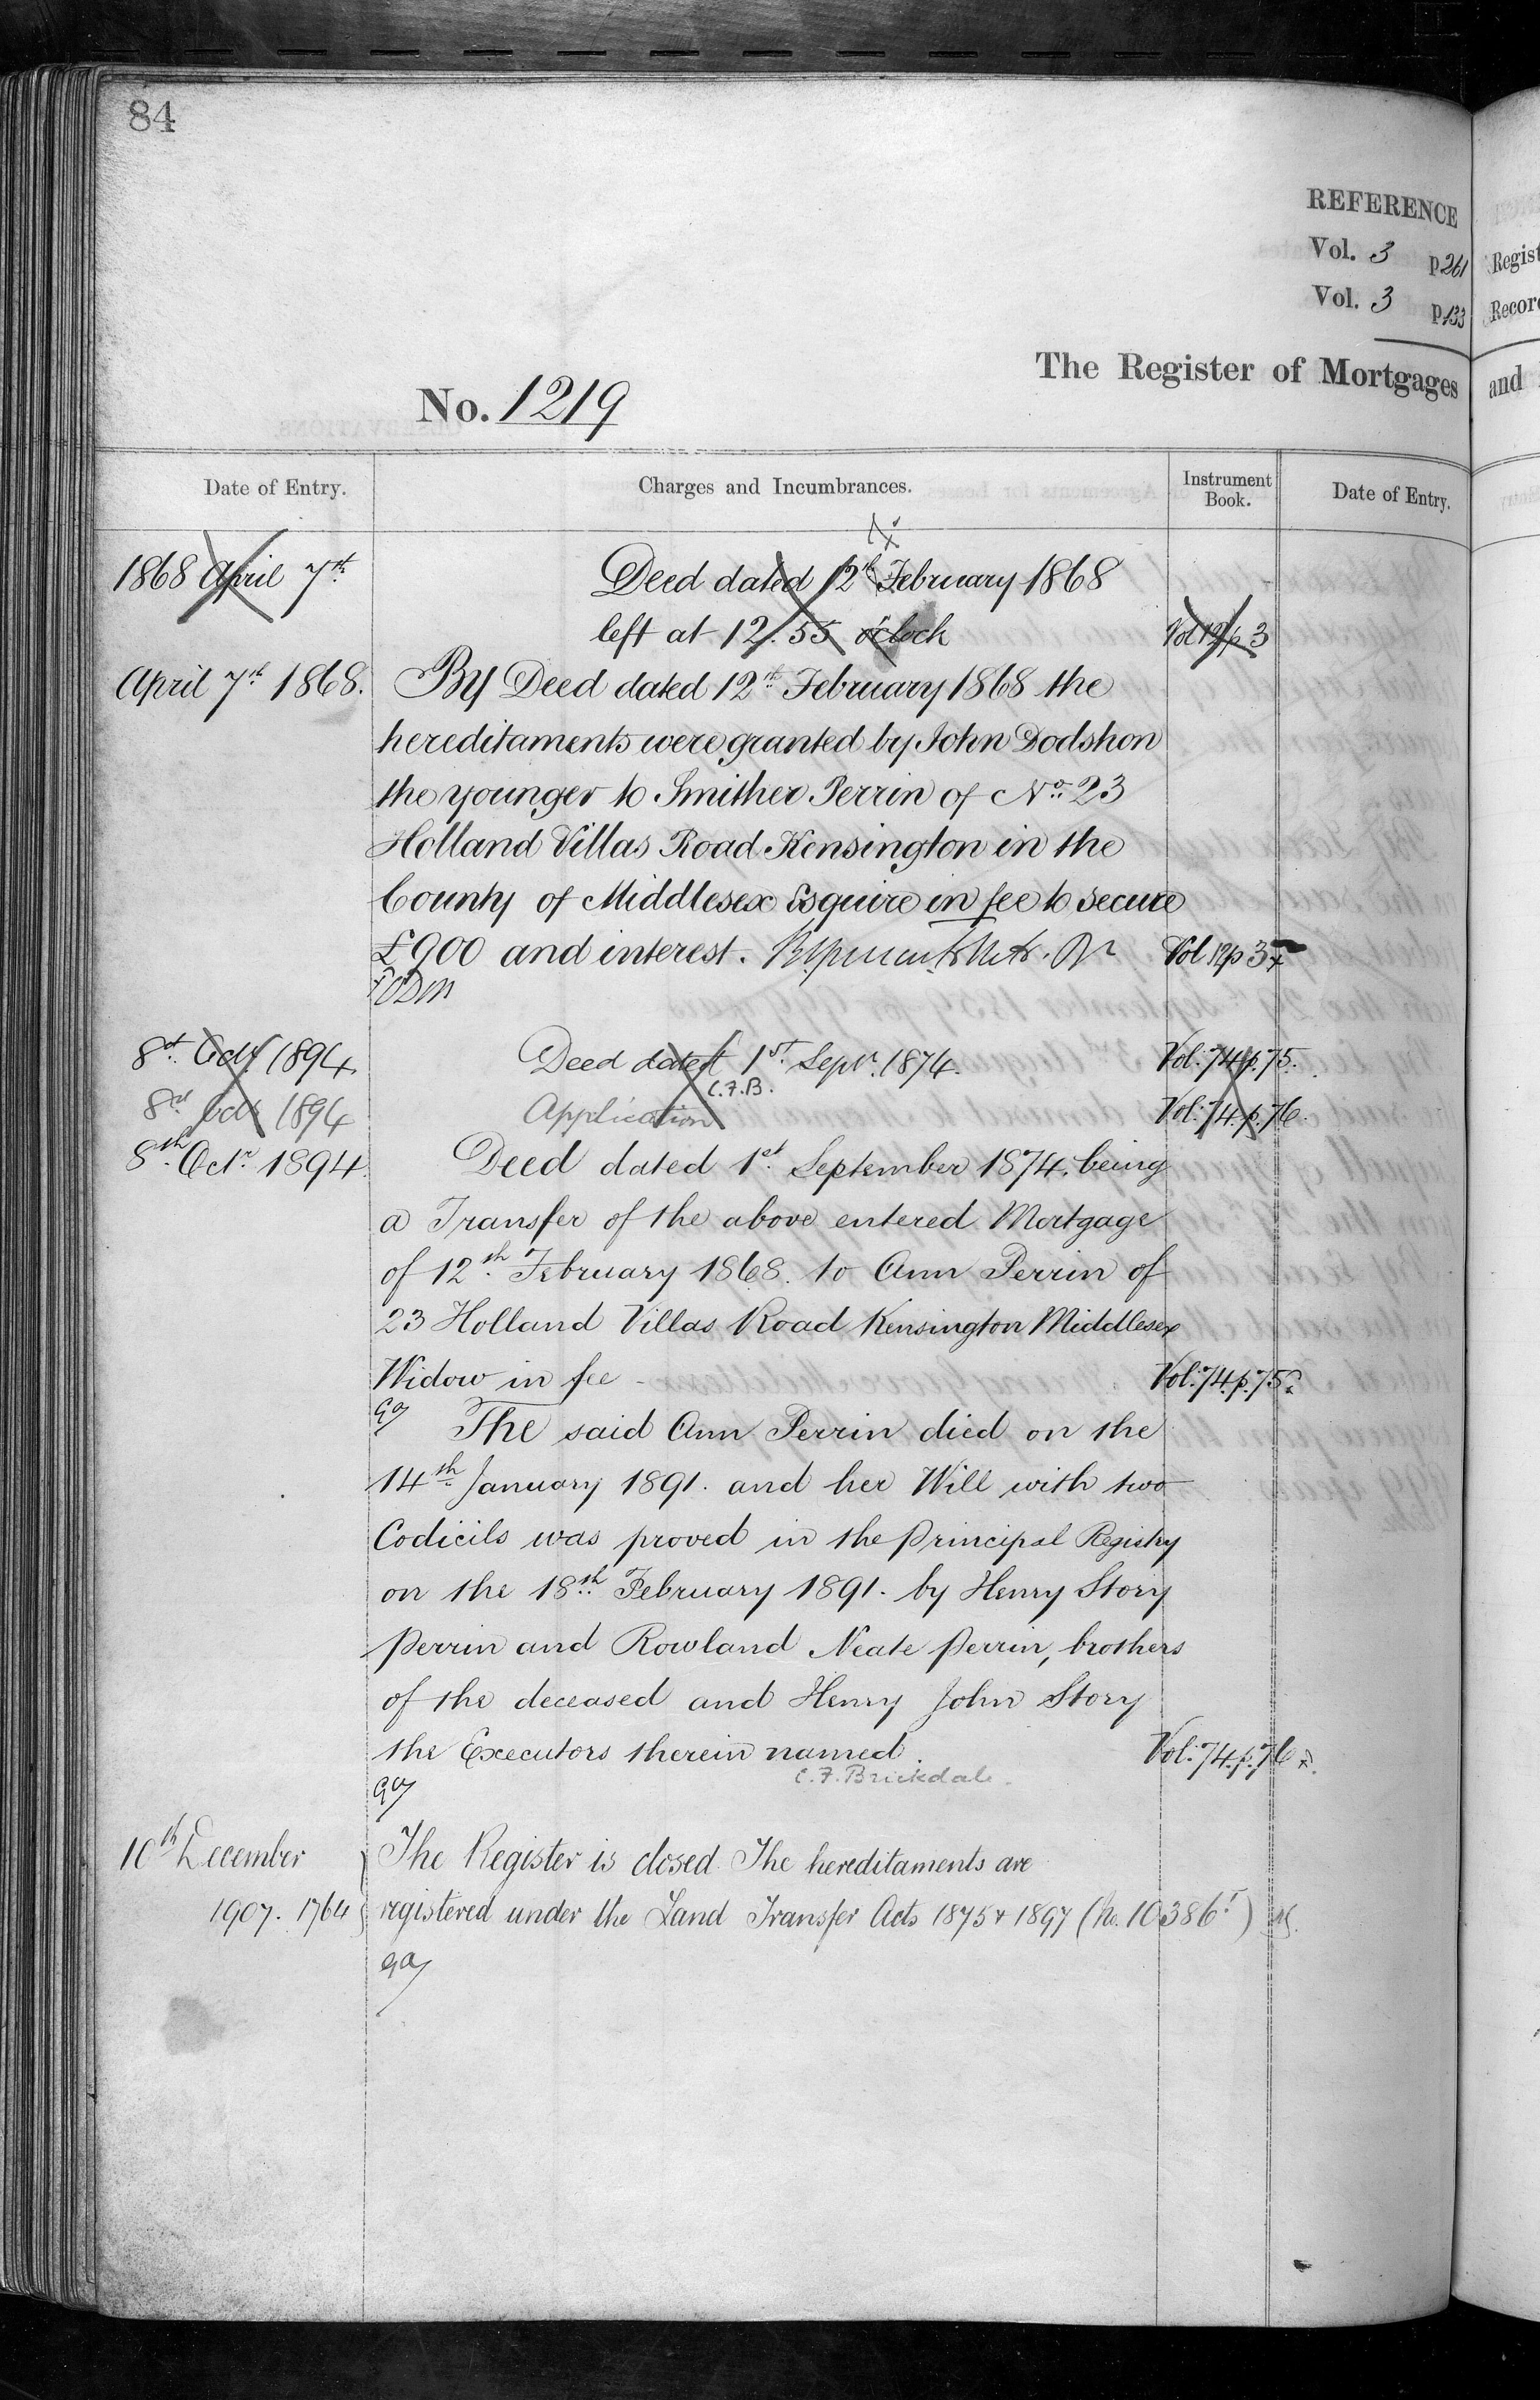 84
REFERENCE
Vol. 3 p261
Vol. 3 p133
Regist
Record
The Register of Mortgages and
No. 1219
Date of Entry. Charges and Incumbrances. Instrument Book. Date of Entry.
1868 April 7th Deed dated 12th February 1868
left at 12.55 o'clock Vol 12 p 3
April 7th 1868. By Deed dated 12th February 1868 the
hereditaments were granted by John Dodshon
the younger to Smither Perrin of No. 23
Holland Villas Road Kensington in the
County of Middlesex Esquire in fee to secure
£900 and interest. Vol 12 p 3
8th Octr 1894 Deed dated 1st Septr. 1874. Vol. 74. p. 75.
C.F.B.
8th Octr 1894 Application Vol. 74. p. 76.
8th Octr 1894. Deed dated 1st September 1874. being
a Transfer of the above entered Mortgage
of 12th February 1868. to Ann Perrin of
23 Holland Villas Road Kensington Middlesex
Widow in fee - Vol. 74. p. 75.
The said Ann Perrin died on the
14th January 1891. and her Will with two
Codicils was proved in the Principal Registry
on the 18th February 1891. by Henry Story
Perrin and Rowland Neate Perrin, brothers
of the deceased and Henry John Story
the Executors therein named. Vol. 74. p. 76
C.F. Brickdale.
10th December The Register is closed. The hereditaments are
1907. 1764 registered under the Land Transfer Acts 1875 & 1897 (No. 103865)